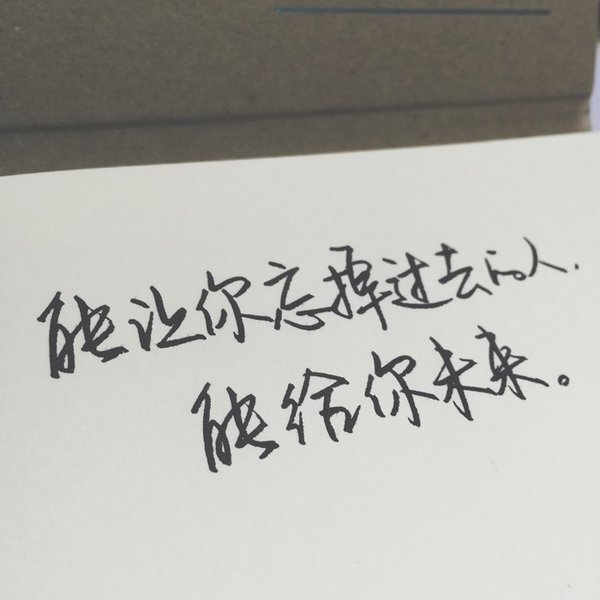 能让你忘掉过去的人.
能给你未来。